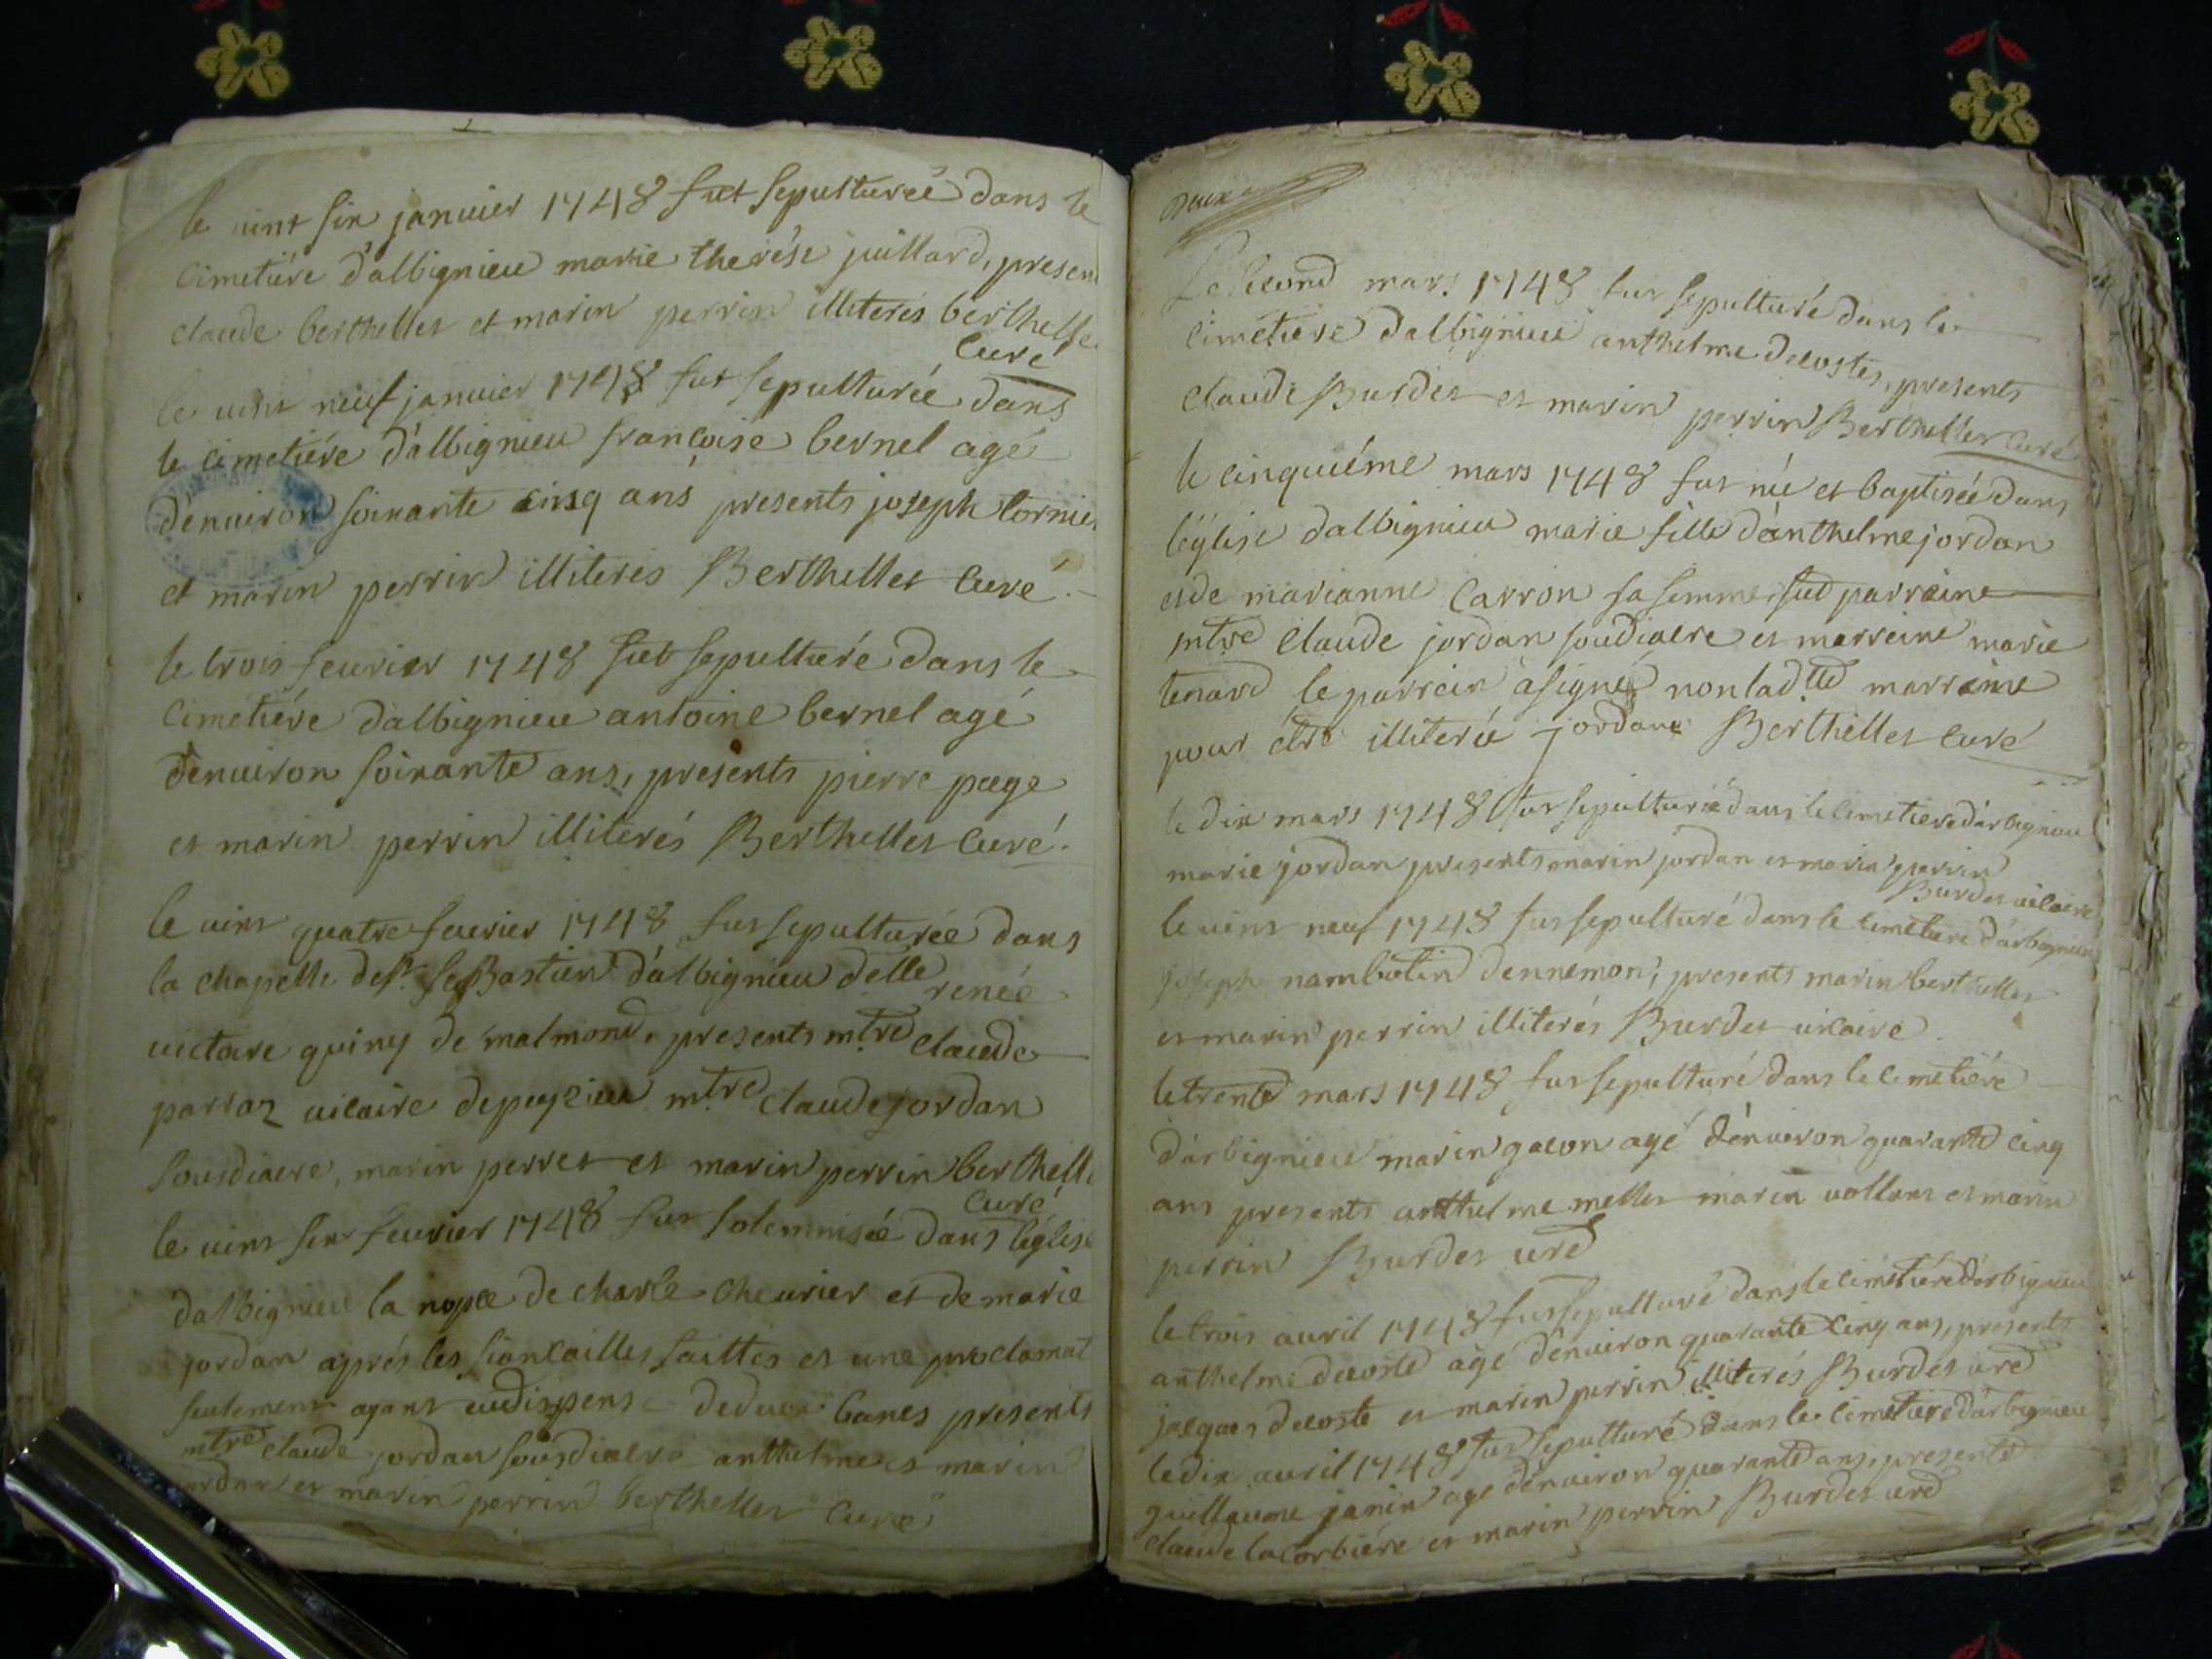 le vint six janvier 1748 fut sepulturée dans le
cimetiére d'albignieu marie therése juillard, presen
claude berthellet et marin perrin illiterés berthelle
curé
le vint neuf janvier 1748 fut sepulturée dans
le cimetiére d'albignieu francoise bernel agé
d'enuiron soixante cinq ans presents joseph cornie
et marin perrin illiterés Berthellet curé
le trois feurier 1748 fut sepulturé dans le
cimetiére d'albignieu antoine bernel agé
denuiron soixante ans, presents pierre page
et marin perrin illiterés Berthellet curé.
le vint quatre feurier 1748 fut sepulturée dans
la chapelle de st. seBastien d'albignieu delle renée
victoire quiny de malmond, presents mtre claude
parraz vicaire de peyzieu mtre claude jordan
sousdiacre, marin perret et marin perrin berthelle
curé
le vint six feurier 1748 fut solemnisée dans l'églis
dalbignieu la nopce de charle cheurier et de marie
jordan aprés les fiancailles faittes et une proclamat
seulement ayant eu dispense de deux bancs presents
mtre claude jordan sousdiacre anthelme et marin
jordan et marin perrin berthellet curé
Le second mars 1748 fut sepulturé dans le
cimetiere d'albignieu anthelme decostes, presents
claude Burdet et marin perrin Berthellet curé
le cinquiéme mars 1748 fut née et baptisée dans
l'église d'albignieu marie fille d'anthelme jordan
et de marianne carron sa femme, fut parraine
mtre claude jordan soudiacre et marreine marie
tenard le parrain a signé non laditte marraine
pour étre illiterée jordan Berthellet curé
le dix mars 1748 fut sepulturé dans le cimetiere d'arbignieu
marie jordan presents marin jordan et marin perrin
Burdet vicaire
le vint neuf 1748 fut sepulturé dans le cimetiere d'arbignieu
joseph nambotin dennemon, presents marin berthellet
et marin perrin illiterés Burdet vicaire
le trente mars 1748 fut sepulturé dans le cimetiére
d'arbignieu marin gacon agé d'énuiron quarante cinq
ans presents anthelme mellet marin vollans et marin
perrin Burdet vre
le trois auril 1748 fut sepulturé dans le cimetiére d'arbignieu
anthelme decoste agé d'enuiron quarante cinq ans, presents
jacques decoste et marin perrin illiterés Burdet vre
le dix auril 1748 fut sepulturé dans le cimetiere d'arbignieu
guillaume janin agé d'enuiron quarante ans, presents
claude lacorbiére et marin perrin Burdet vre